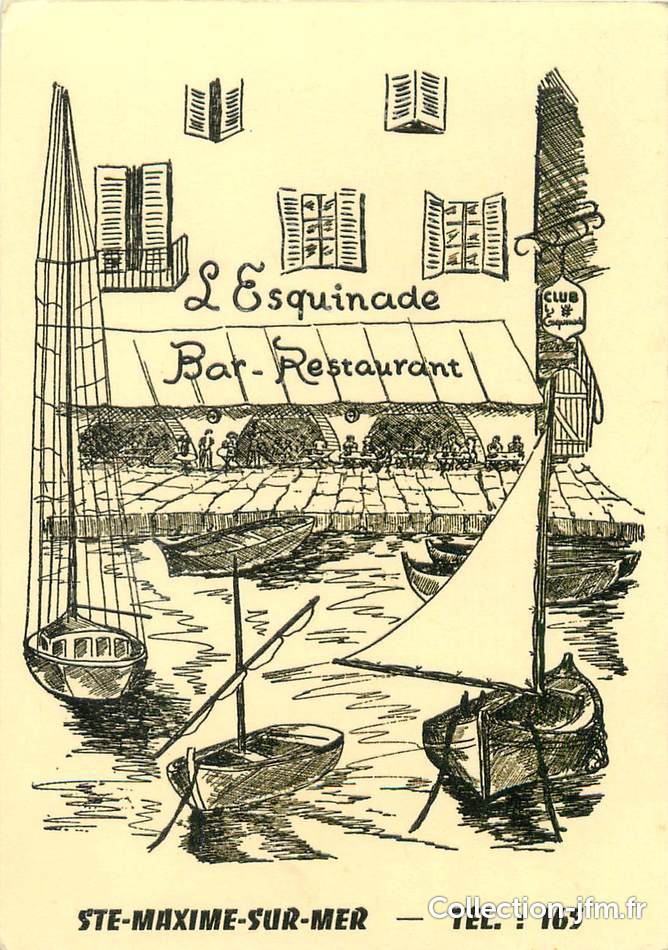 L'Esquinade
Bar-Restaurant
CLUB
STE-MAXIME-SUR-MER — TEL. : 169
Collection-jfm.fr